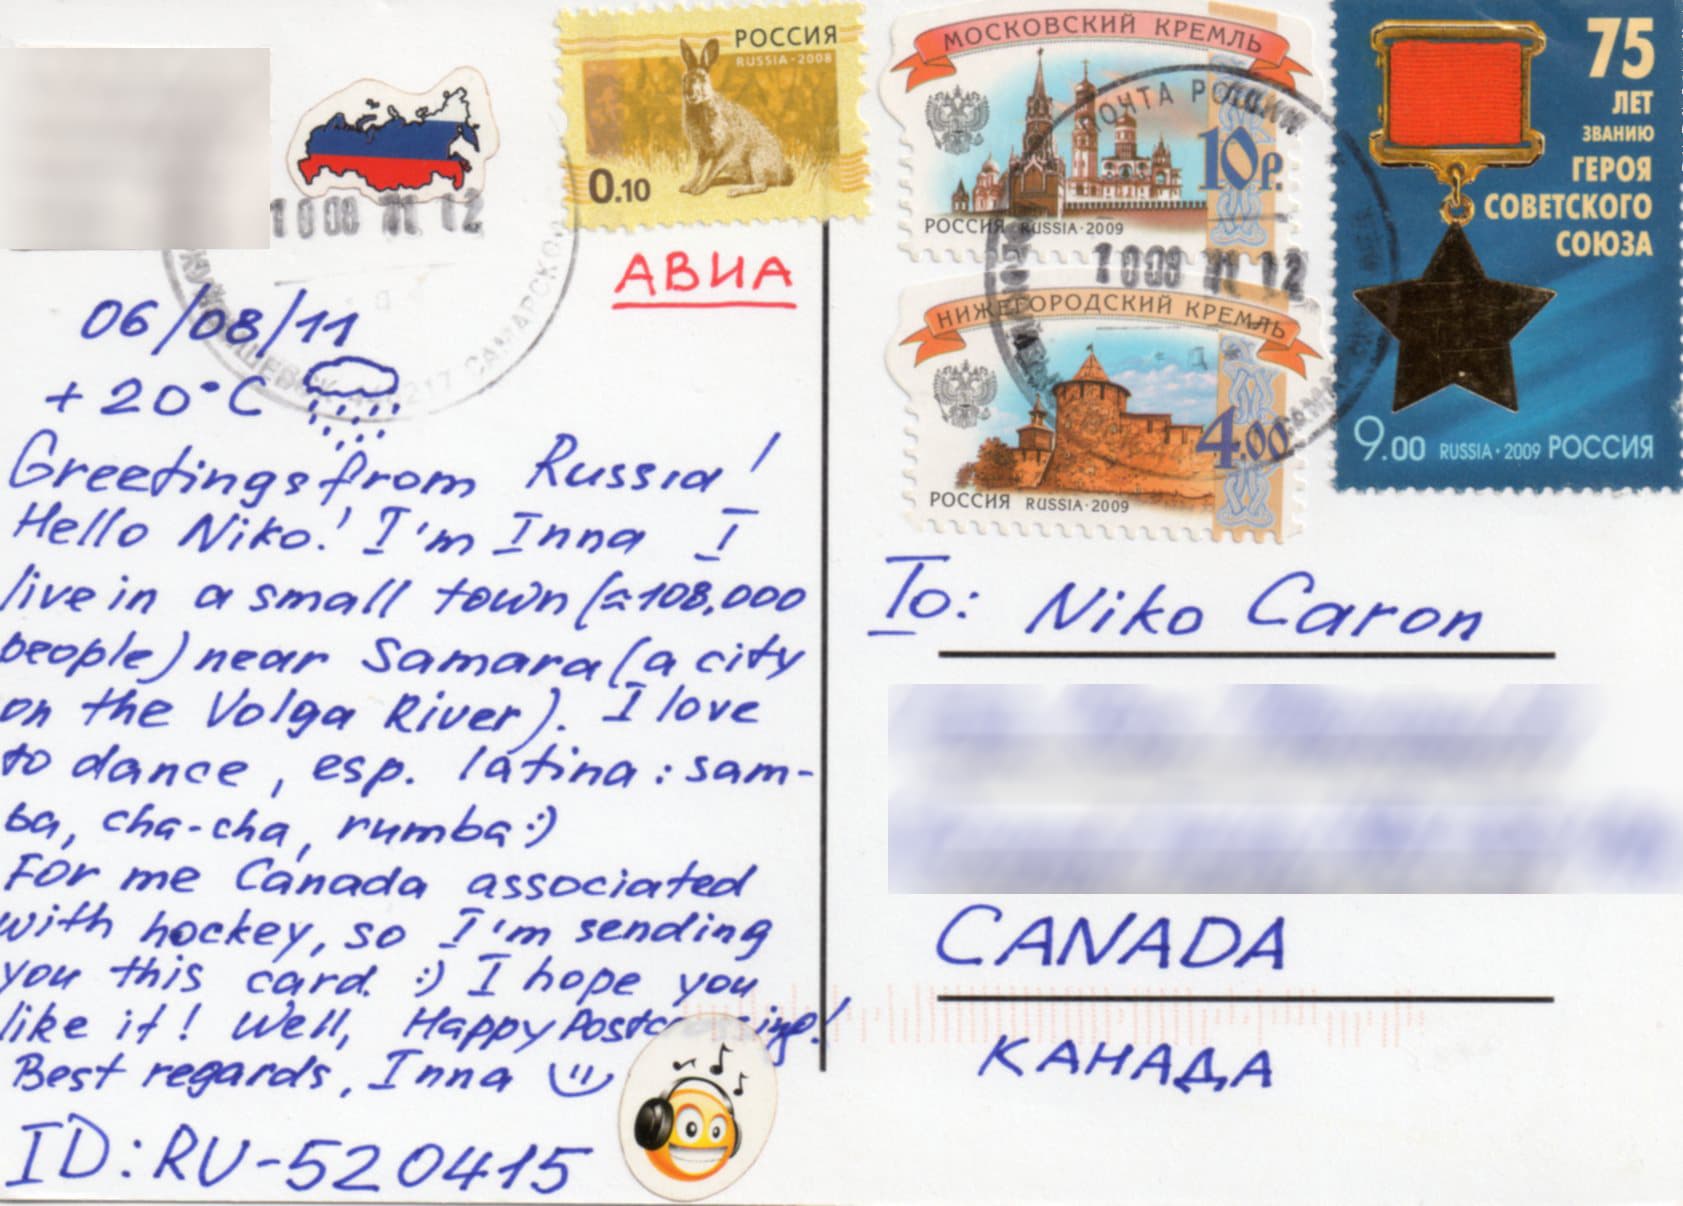 РОССИЯ
RUSSIA·2008
0.10
МОСКОВСКИЙ КРЕМЛЬ
10р.
РОССИЯ RUSSIA·2009
НИЖЕГОРОДСКИЙ КРЕМЛЬ
4.00
РОССИЯ RUSSIA·2009
75
ЛЕТ
ЗВАНИЮ
ГЕРОЯ
СОВЕТСКОГО
СОЮЗА
9.00 RUSSIA·2009 РОССИЯ
ПОЧТА РОССИИ
1008 11 12
1008 11 12
САМАРСКОЙ
АВИА
06/08/11
+20°C
Greetings from Russia!
Hello Niko! I'm Inna I
live in a small town (≈108,000
people) near Samara (a city
on the Volga River). I love
to dance, esp. latina: sam-
ba, cha-cha, rumba:)
For me Canada associated
with hockey, so I'm sending
you this card. :) I hope you
like it! Well, Happy Postcrossing!
Best regards, Inna
ID: RU-520415
To: Niko Caron
CANADA
КАНАДА